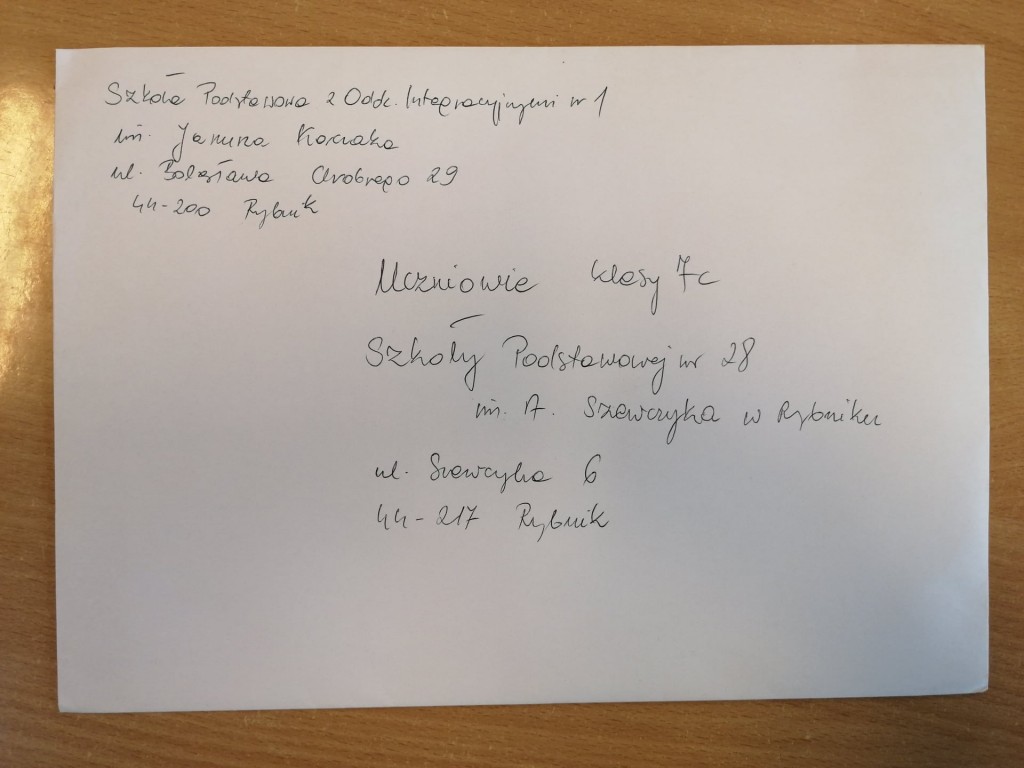 Szkoła Podstawowa z Oddz. Integracyjnymi nr 1
im. Janusza Korczaka
ul. Bolesława Chrobrego 29
44-200 Rybnik
Uczniowie klasy 7c
Szkoły Podstawowej nr 28
im. A. Szewczyka w Rybniku
ul. Szewczyka 6
44-217 Rybnik